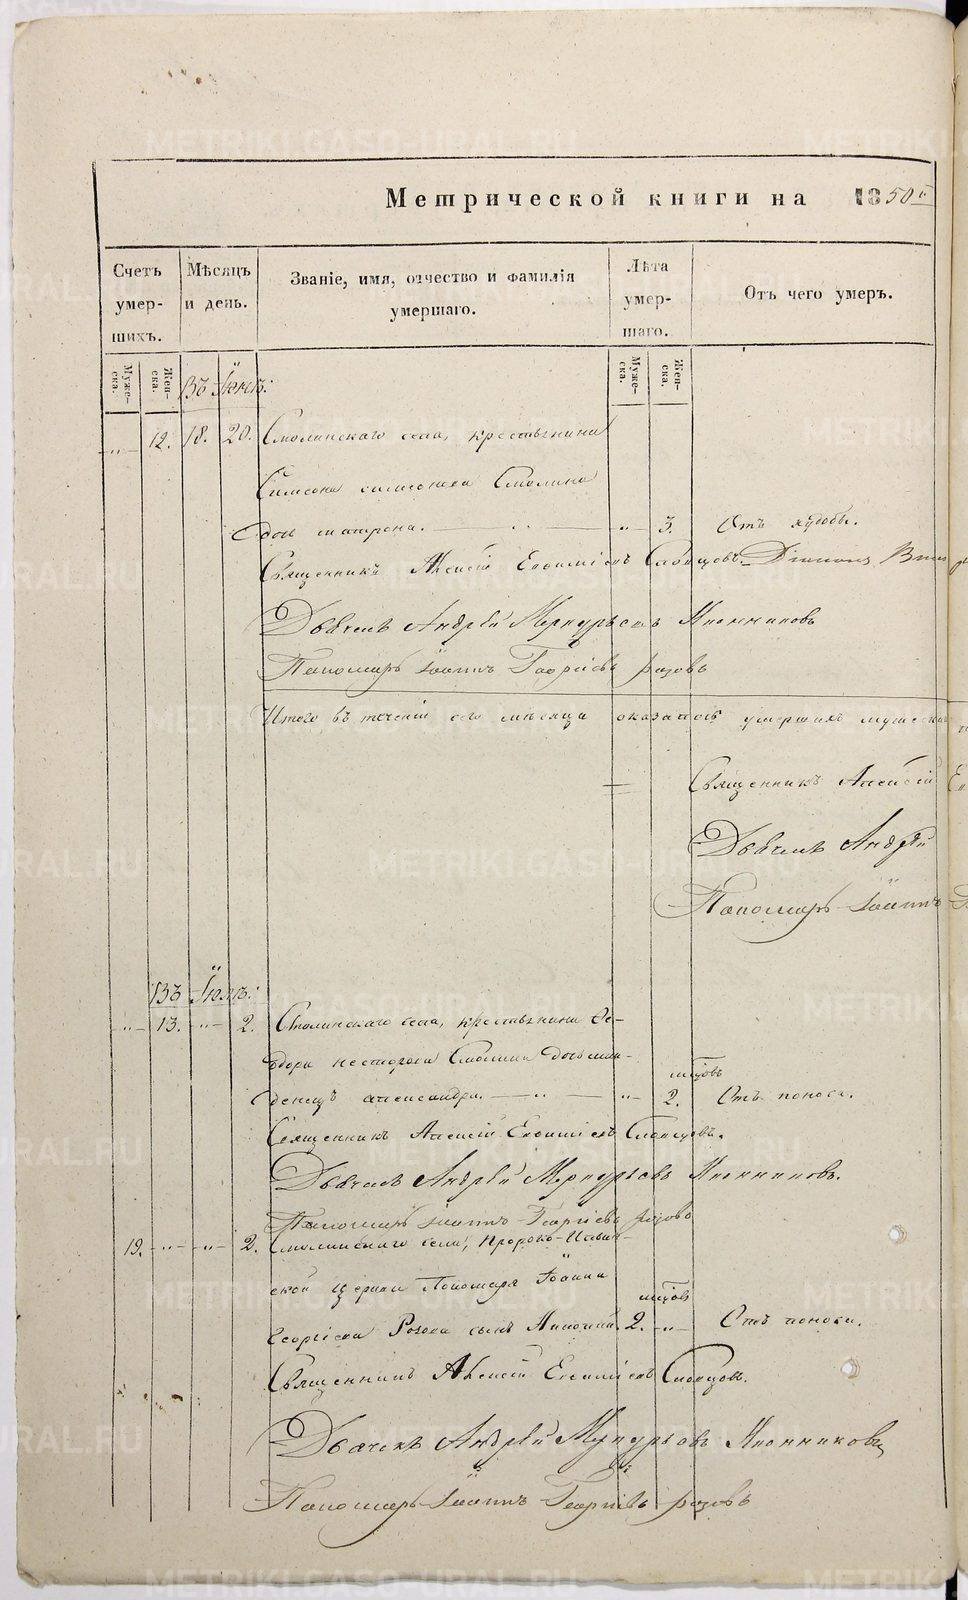 Метрической книги на 1850й
Счетъ умершихъ.
Мѣсяцъ и день.
Званіе, имя, отчество и фамилія умершаго.
Лѣта умершаго.
Отъ чего умеръ.
Мужеска.
Женска.
Мужеска.
Женска.
Въ Іюнѣ:
12. 18. 20. Смолинскаго села, крестьянина
Симеона Смолина
дочь 3. Отъ худобы.
Священникъ Алексій Евфиміевъ Словцовъ
Дьячекъ Андрей Меркурьевъ Иконниковъ
Пономарь Іоаннъ Георгіевъ Розовъ
Итого въ теченіи сего мѣсяца оказалось умершихъ
Священникъ Алексій
Дьячекъ Андрей
Пономарь Іоаннъ
Въ Іюлѣ:
13. 2. Смолинскаго села, крестьянина Ѳе-
дора Нестерова Смолина дочь мла-
мѣсяцов
денецъ Александра. 2. Отъ поноса.
Священникъ Алексій Евфиміевъ Словцовъ.
Дьячекъ Андрей Меркурьевъ Иконниковъ.
Пономарь Іоаннъ Георгіевъ Розовъ
19. 2. Смолинскаго села, Пророко-Ильин-
ской церкви Пономаря Іоанна
мѣсяцов
Георгіева Розова сынъ 2. Отъ поноса.
Священникъ Алексій Евфиміевъ Словцовъ.
Дьячекъ Андрей Меркурьевъ Иконниковъ
Пономарь Іоаннъ Георгіевъ Розовъ
METRIKI.GASO-URAL.RU